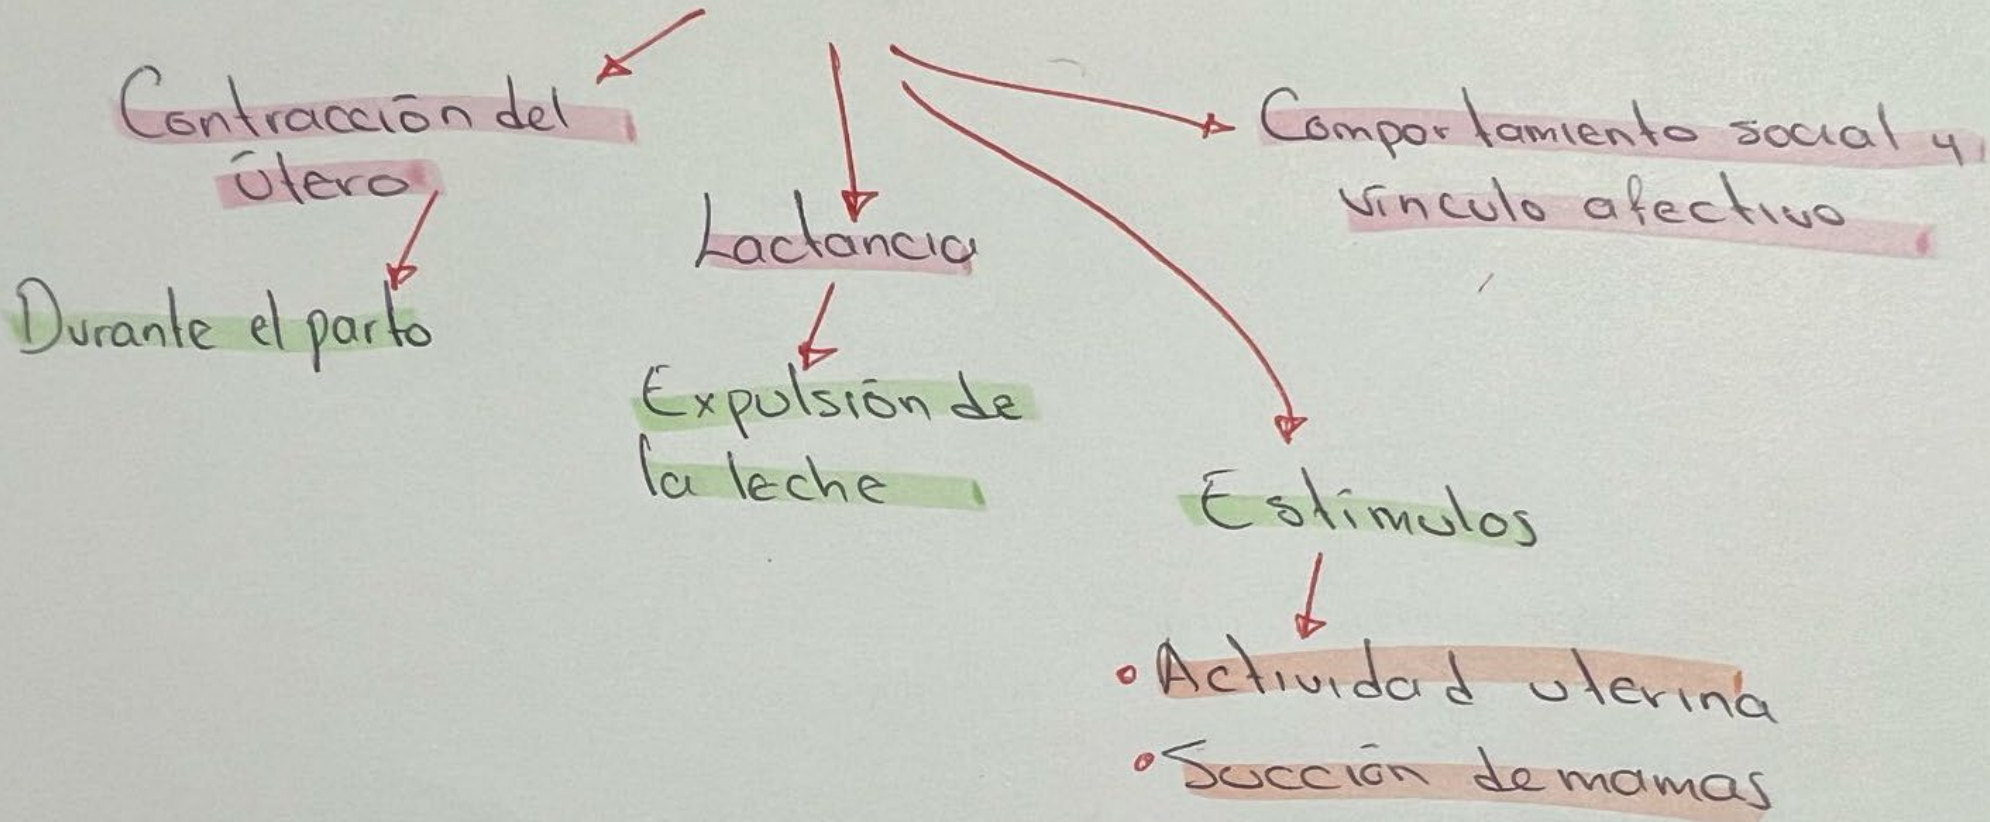 Contracción del
útero
Durante el parto
Lactancia
Expulsión de
la leche
Comportamiento social y
vínculo afectivo
Estímulos
• Actividad uterina
• Succión de mamas